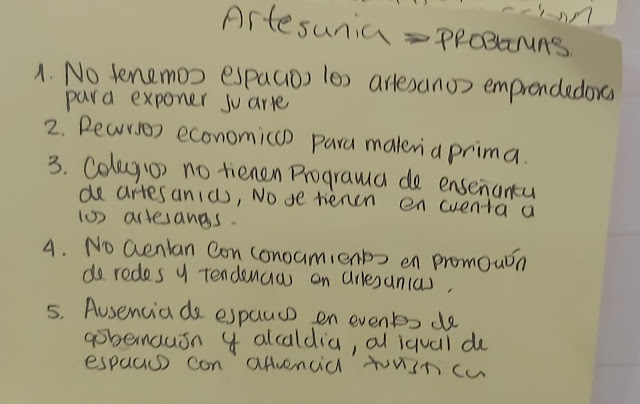 Artesania => PROBLEMAS.
1. No tenemos espacios los artesanos emprendedores
para exponer su arte
2. Recursos economicos para materia prima.
3. Colegios no tienen Programa de enseñanza
de artesanias, No se tienen en cuenta a
los artesanos.
4. No cuentan con conocimientos en promoción
de redes y tendencias en artesanias.
5. Ausencia de espacios en eventos de
gobernación y alcaldia, al igual de
espacios con afluencia turistica